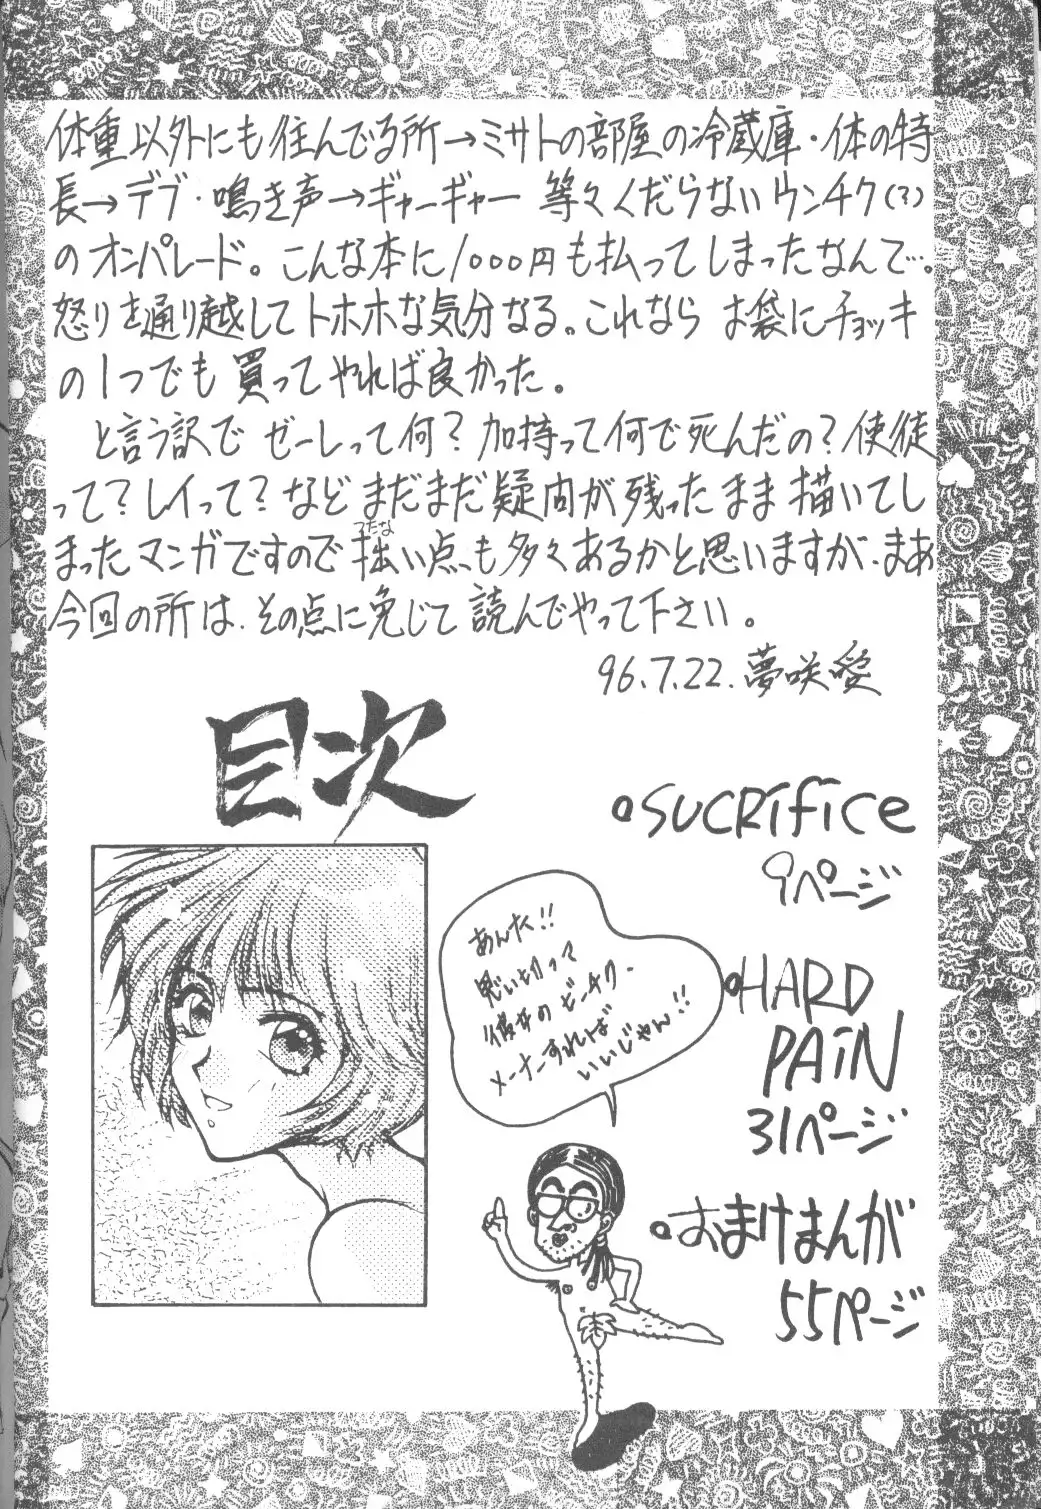 体重以外にも住んでる所→ミサトの部屋の冷蔵庫・体の特
長→デブ・鳴き声→ギャーギャー 等々くだらないウンチク(?)
のオンパレード。こんな本に1000円も払ってしまったなんて…。
怒りを通り越してトホホな気分なる。これなら お袋にチョッキ
の1つでも買ってやれば良かった。
と言う訳で ゼーレって何？加持って何で死んだの？使徒
って？レイって？などまだまだ疑問が残ったまま描いてし
まったマンガですので拙い点も多々あるかと思いますが、まあ
今回の所は、その点に免じて読んでやって下さい。
96.7.22.夢咲愛
目次
SUCRifice
9ページ
HARD
PAiN
31ページ
おまけまんが
55ページ
あんた!!
思い切って
彼女のビーチク
いいじゃん!!